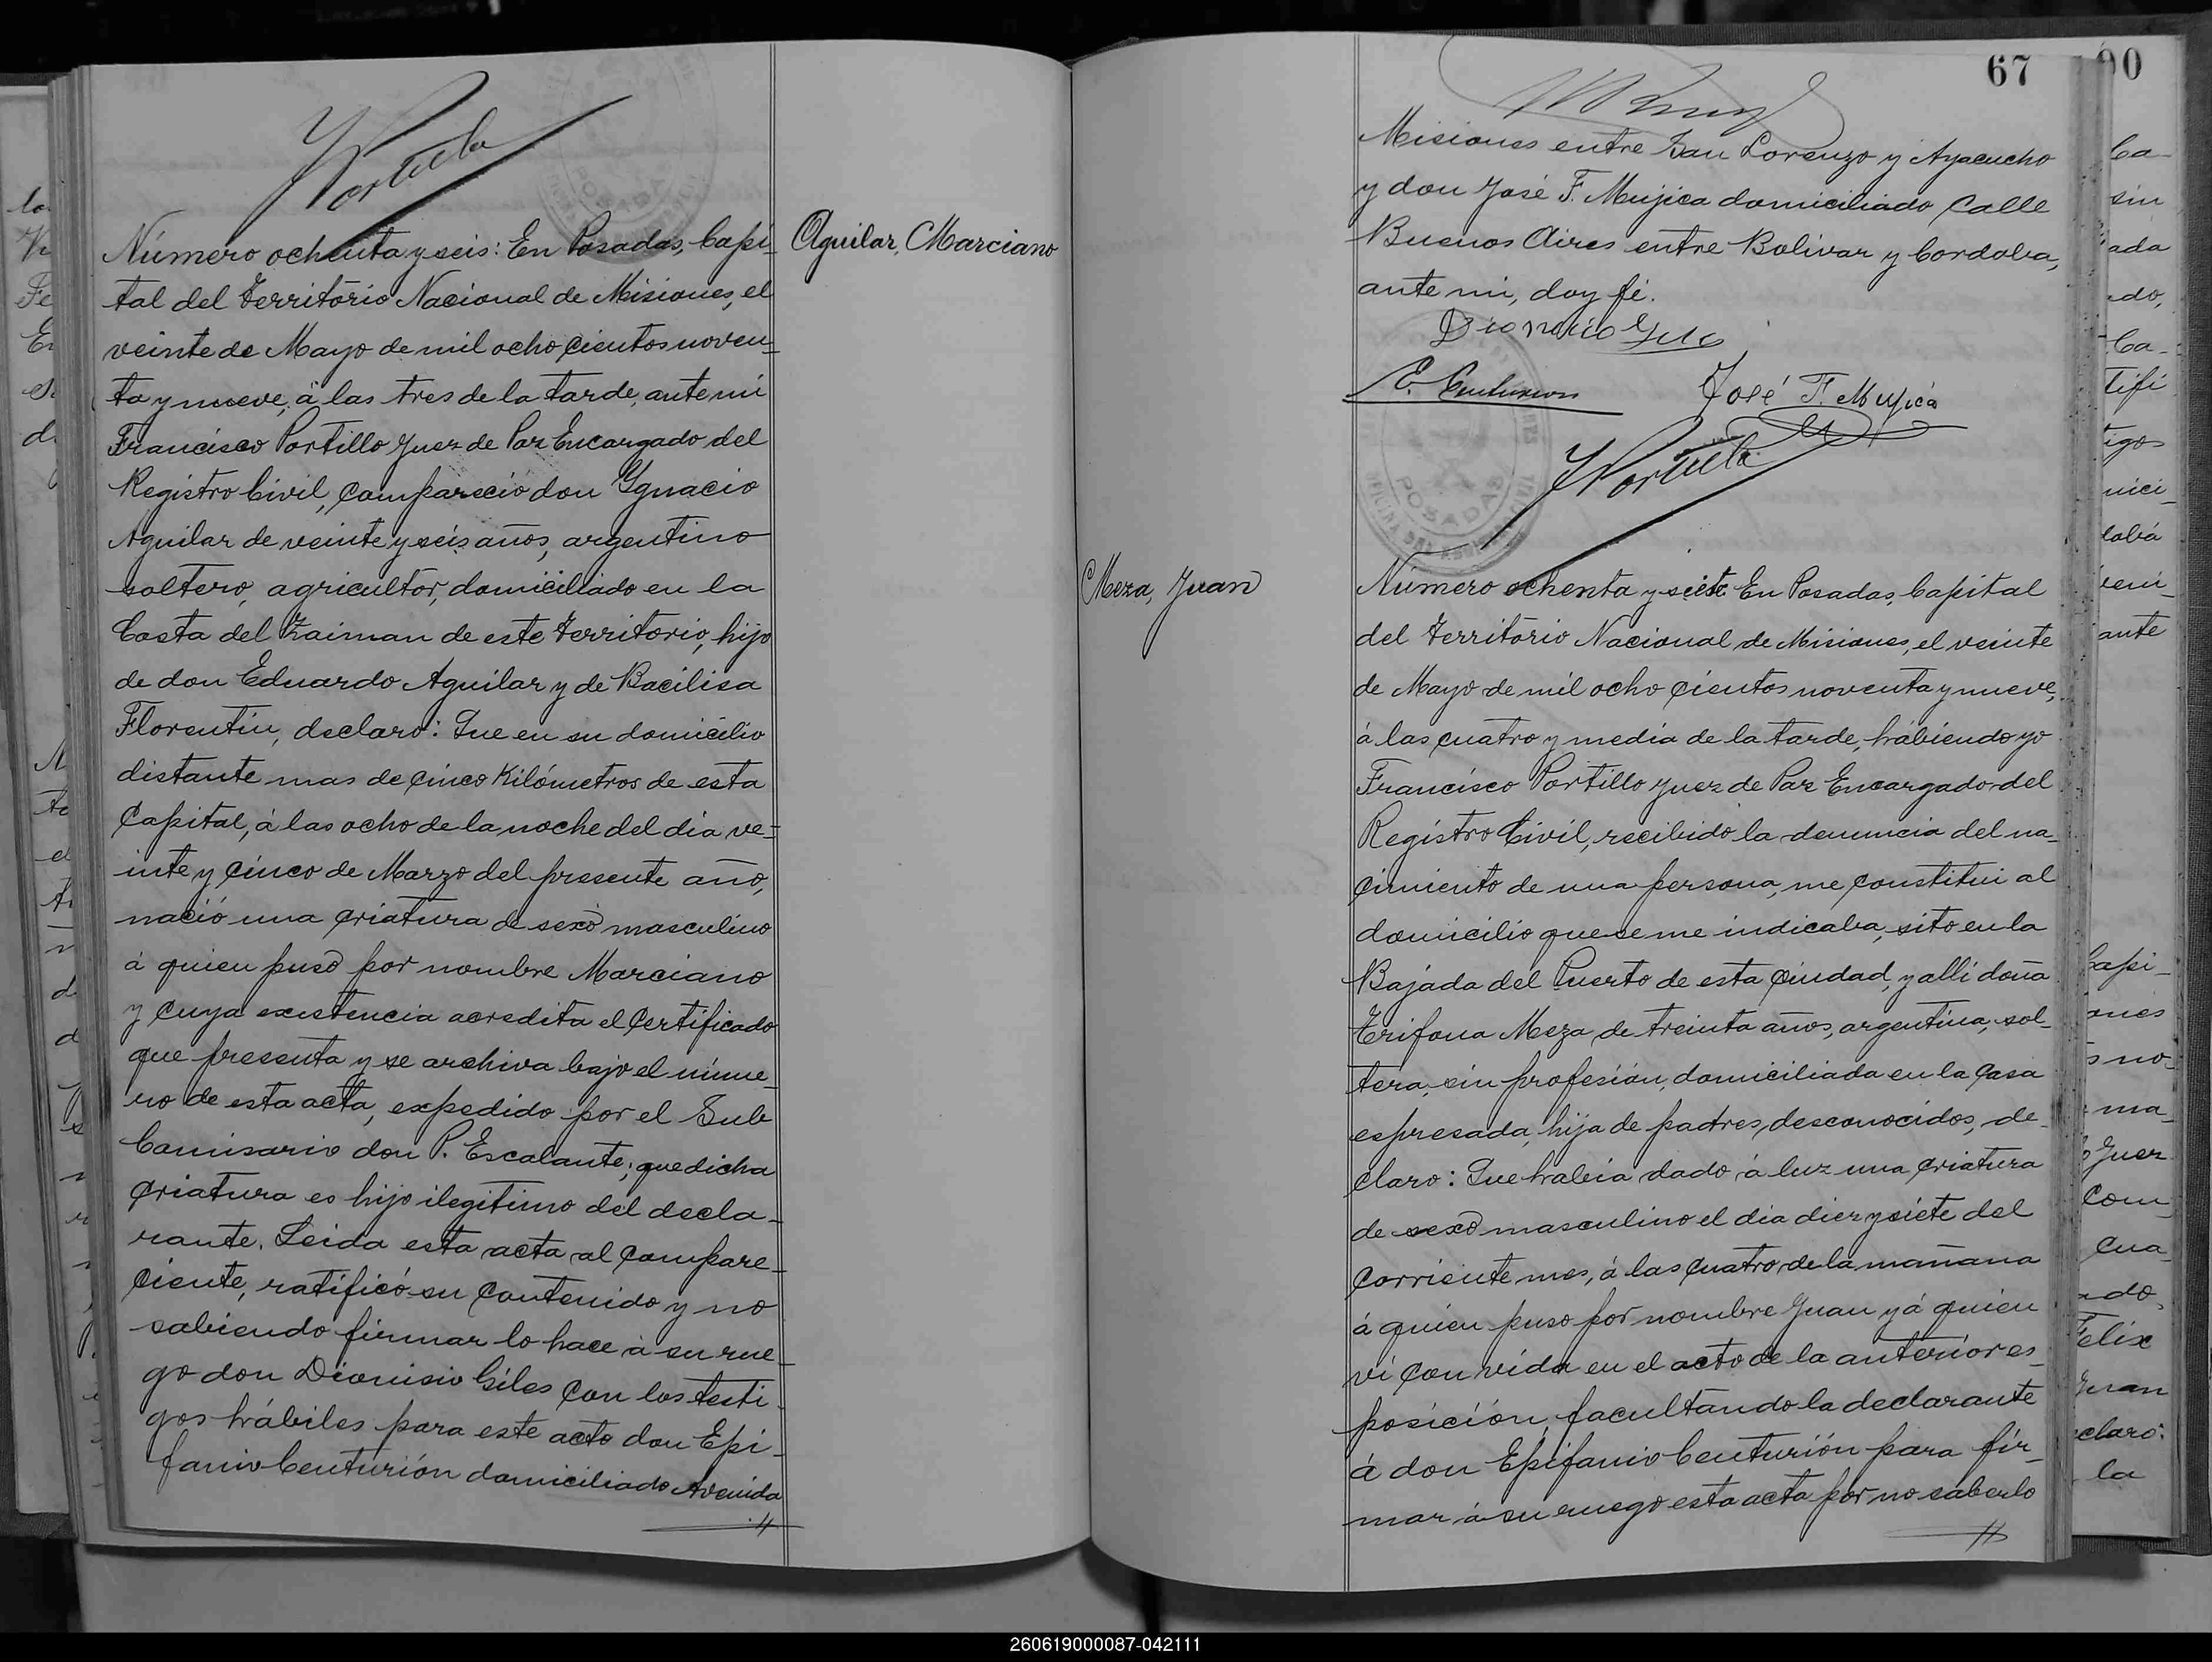 FPortillo
Número ochenta y seis: En Posadas, Capi-
tal del Territorio Nacional de Misiones, el
veinte de Mayo de mil ocho cientos noven-
ta y nueve, á las tres de la tarde, ante mi
Francisco Portillo Juez de Paz Encargado del
Registro Civil, compareció don Ygnacio
Aguilar de veinte y seis años, argentino
soltero, agricultor, domiciliado en la
Costa del Zaiman de este Territorio, hijo
de don Eduardo Aguilar y de Bacilisa
Florentin, declaró: Que en su domicilio
distante mas de cinco Kilómetros de esta
Capital, á las ocho de la noche del dia ve-
inte y cinco de Marzo del presente año,
nació una criatura de sexo masculino
á quien puso por nombre Marciano
y cuya existencia acredita el certificado
que presenta y se archiva bajo el núme-
ro de esta acta, expedido por el Sub
Comisario don P. Escalante; que dicha
criatura es hijo ilegitimo del decla-
rante. Leida esta acta al compare-
ciente, ratificó su contenido y no
sabiendo firmar lo hace á su rue-
go don Dionisio Giles con los testi-
gos hábiles para este acto don Epi-
fanio Centurión domiciliado Avenida
Aguilar, Marciano
67
Misiones entre San Lorenzo y Ayacucho
y don José F. Mujica domiciliado Calle
Buenos Aires entre Bolivar y Cordoba,
ante mi, doy fé.
Dionicio Giles
E. Centurion
José F. Mujica
FPortillo
POSADAS
Meza, Juan
Número ochenta y siete En Posadas, Capital
del Territorio Nacional de Misiones, el veinte
de Mayo de mil ocho cientos noventa y nueve,
á las cuatro y media de la tarde, hábiendo yo
Francisco Portillo Juez de Paz Encargado del
Registro Civil, recibido la denuncia del na-
cimiento de una persona, me constitui al
domicilio que se me indicaba, sito en la
Bajada del Puerto de esta ciudad, y alli doña
Trifona Meza, de treinta años, argentina, sol-
tera, sin profesión, domiciliada en la casa
espresada, hija de padres desconocidos, de-
claro: Que habia dado á luz una criatura
de sexo masculino el dia diez y siete del
corriente mes, á las cuatro de la mañana
á quien puso por nombre Juan y á quien
vi con vida en el acto de la anterior es-
posición, facultando la declarante
á don Epifanio Centurión para fir-
mar á su ruego esta acta por no saberlo
90
260619000087-042111